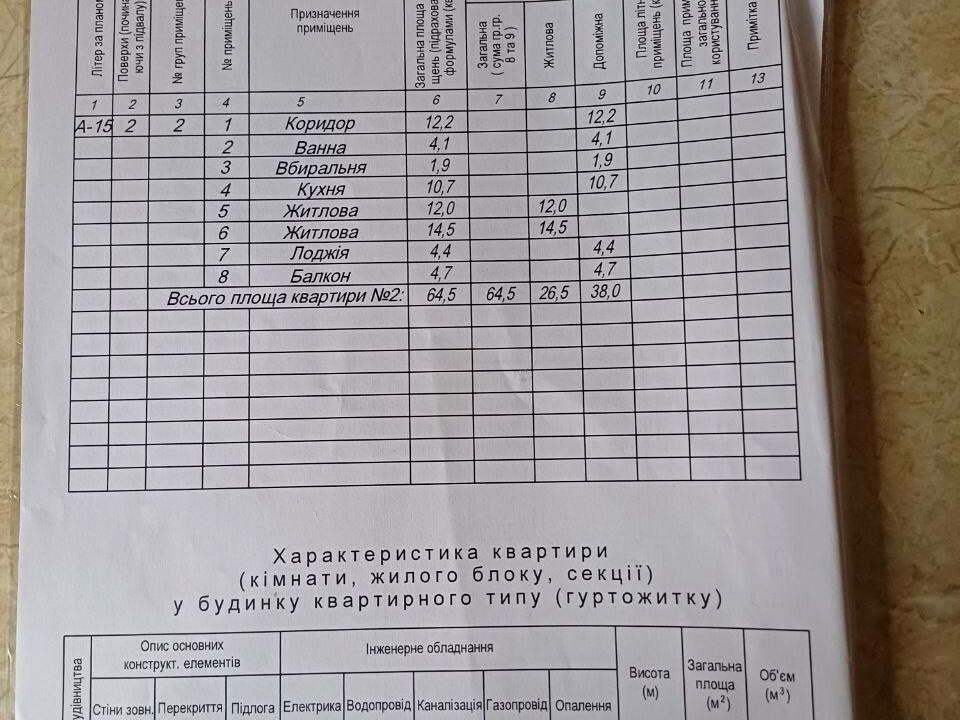 Літер за планом
Поверхи (почина
ючи з підвалу)
№ груп приміщень
№ приміщень
Призначення
приміщень
Загальна площа
щень (підрахова
формулами (кв
Загальна
( сума гр.гр.
8 та 9 )
Житлова
Допоміжна
Площа літн
приміщень (к
Площа прим
загально
користуван
Примітка
1 2 3 4 5 6 7 8 9 10 11 13
А-15 2 2 1 Коридор 12,2 12,2
2 Ванна 4,1 4,1
3 Вбиральня 1,9 1,9
4 Кухня 10,7 10,7
5 Житлова 12,0 12,0
6 Житлова 14,5 14,5
7 Лоджія 4,4 4,4
8 Балкон 4,7 4,7
Всього площа квартири №2: 64,5 64,5 26,5 38,0
Характеристика квартири
(кімнати, жилого блоку, секції)
у будинку квартирного типу (гуртожитку)
удівництва
Опис основних
конструкт. елементів
Інженерне обладнання
Висота
(м)
Загальна
площа
(м²)
Об'єм
(м³)
Стіни зовн. Перекриття Підлога Електрика Водопровід Каналізація Газопровід Опалення